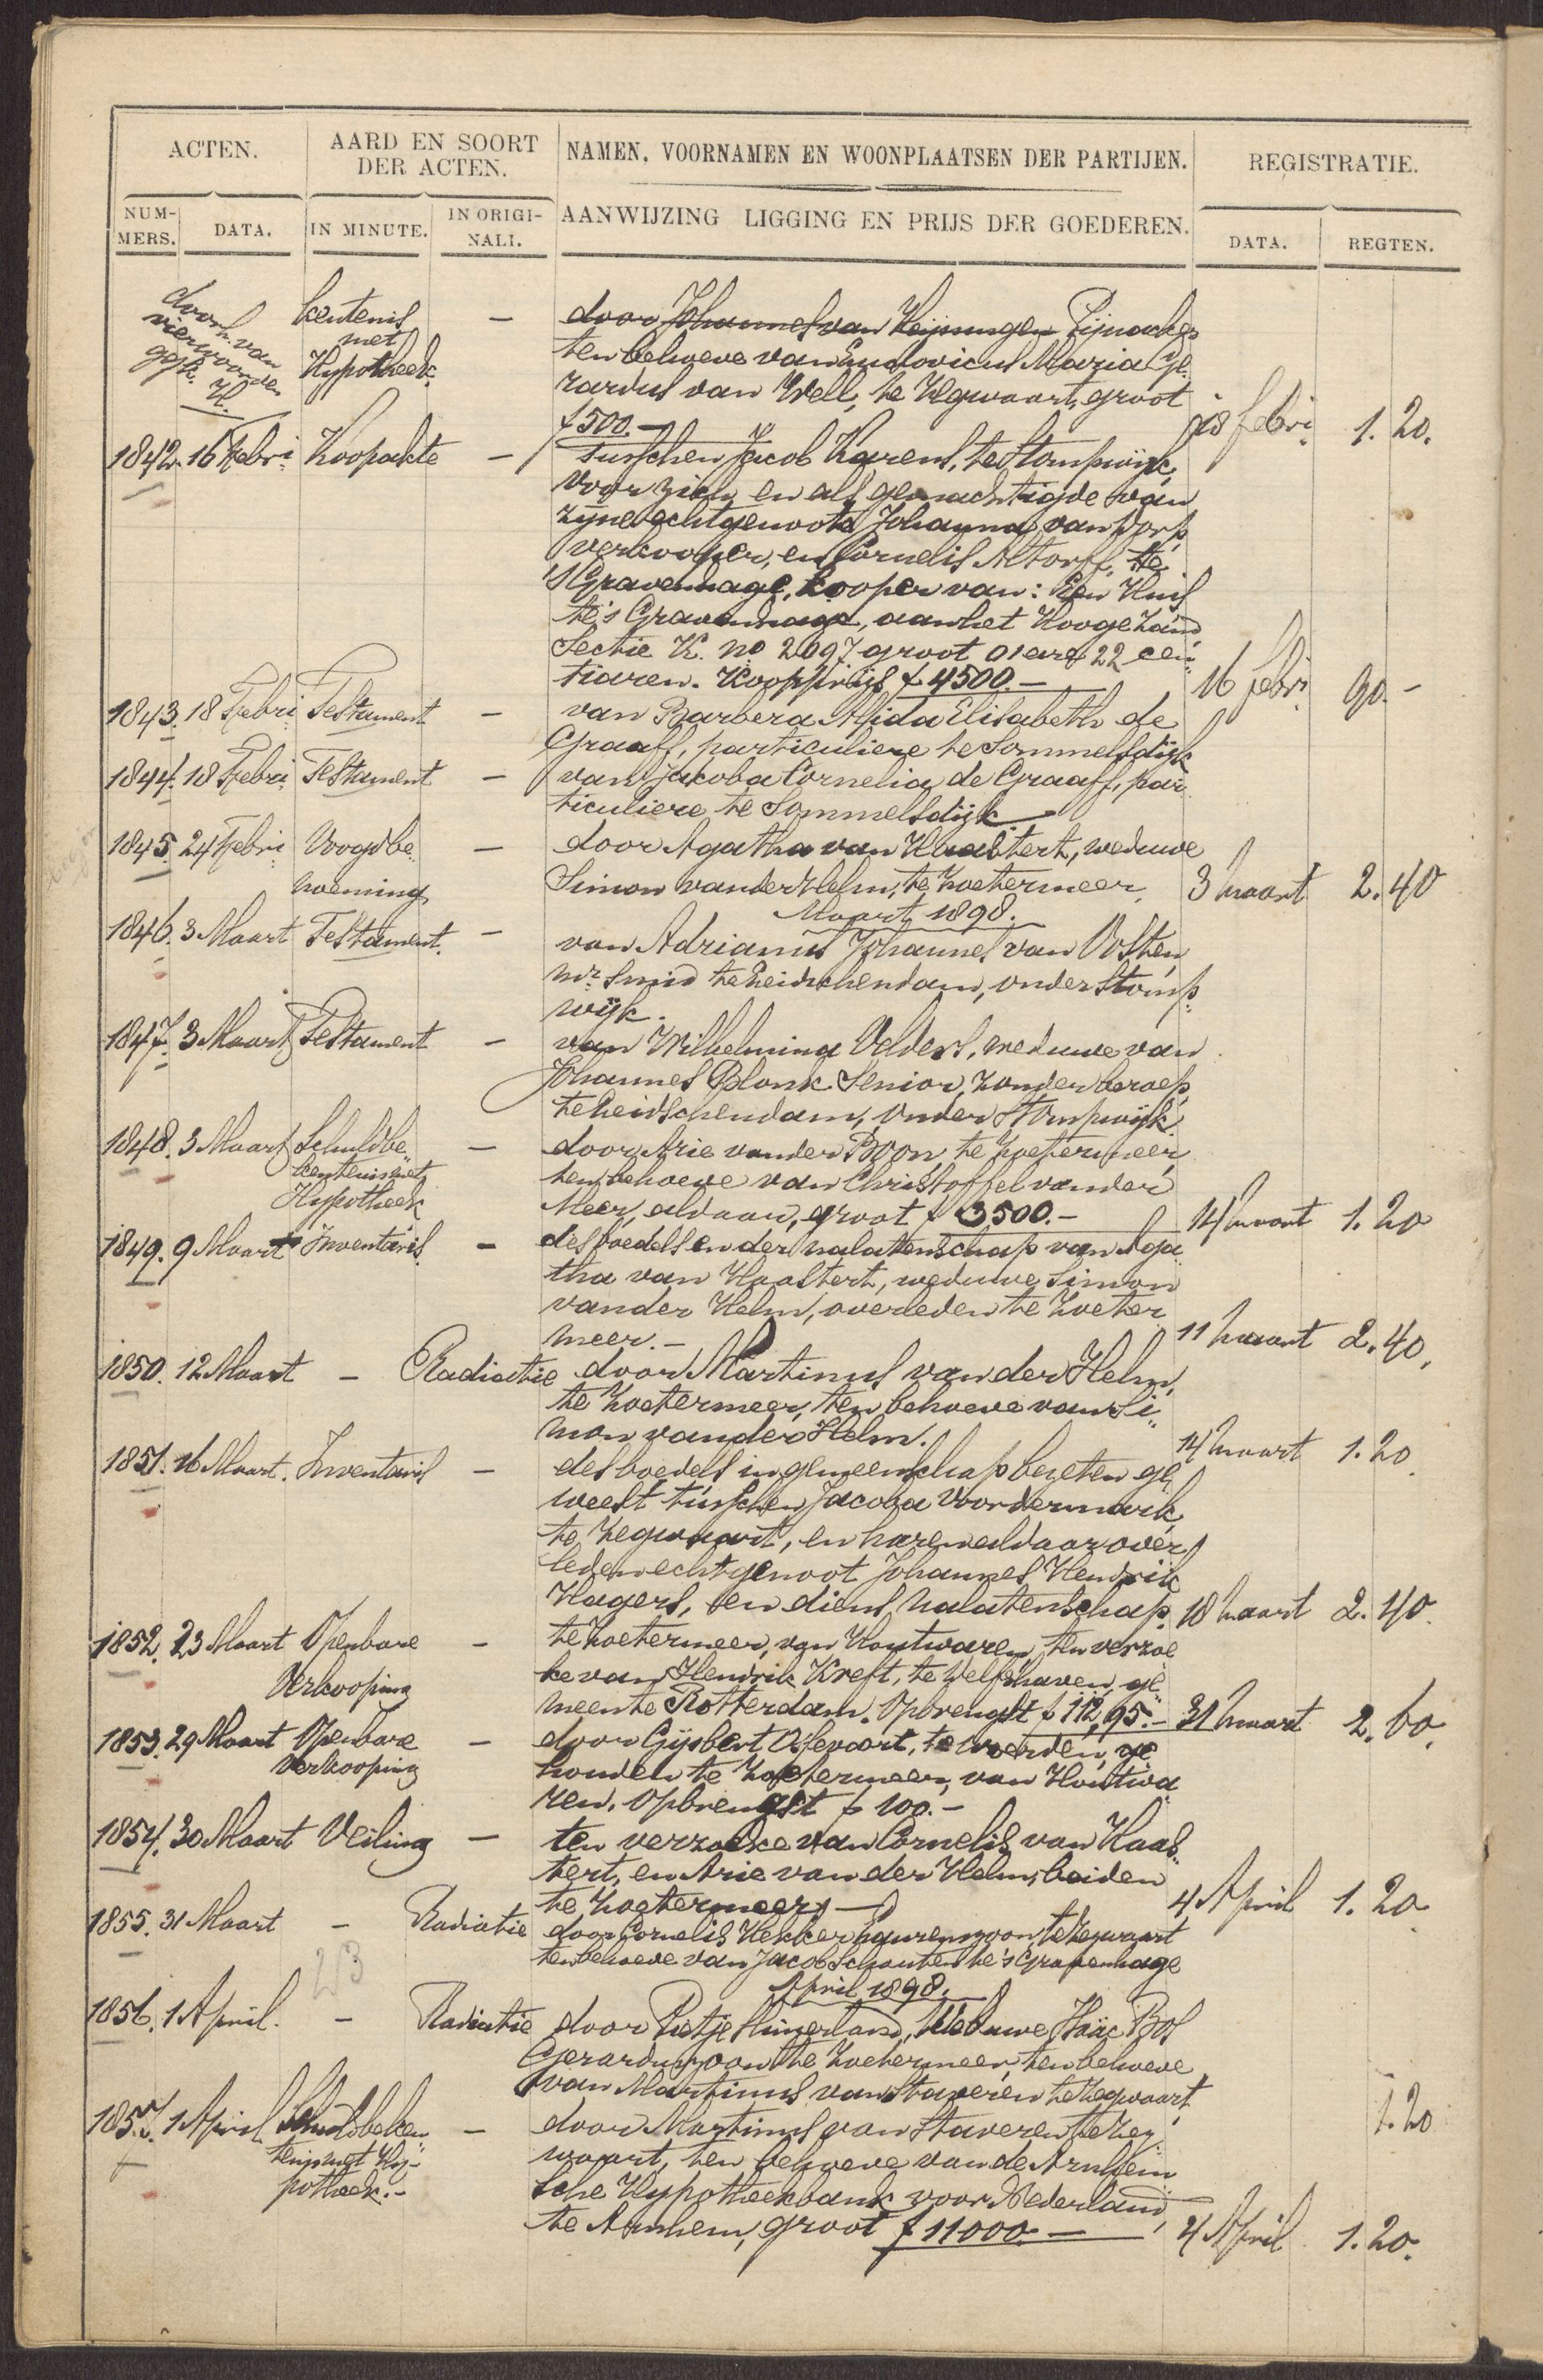 ACTEN.
AARD EN SOORT
DER ACTEN.
NAMEN, VOORNAMEN EN WOONPLAATSEN DER PARTIJEN.
REGISTRATIE.
NUM-
MERS.
DATA.
IN MINUTE.
IN ORIGI-
NALI.
AANWIJZING LIGGING EN PRIJS DER GOEDEREN.
DATA.
REGTEN.
doorh. van
vier woorden
ggk.
kentenis - door Johannes van Heijningen Pijnacker
met ten behoeve van Ludovicus Maria Ge-
Hypotheek. rardus van Well, te Zegwaart, groot
f 500.- 18 febri 1.20.
1842. 16 Febri. Koopakte - tusschen Jacob Karens, te Stompwijk,
voor zich en als gemachtigde van
zijne echtgenoote Johanna van Dorp
verkooper, en Cornelis Altorff, te
's Gravenhage, kooper van: Een Huis
te 's Gravenhage, aan het Hooge Zand
Sectie K. no 2097 groot 01 are 22 cen„
tiaren. Koopprijs f 4500.- 16 febri 90.-
1843. 18 Febri. Testament - van Barbera Alida Elisabeth de
Graaff, particuliere te Sommelsdijk
1844. 18 Febri. Testament - van Jacoba Cornelia de Graaff, par„
ticuliere te Sommelsdijk
1845. 24 Febri. Voogdbe„ - door Agatha van Haastert, weduwe
noeming Simon vander Helm, te Zoetermeer, 3 maart 2.40
Maart 1898.
1846. 3 Maart Testament. - van Adrianus Johannes van Osten,
mr. smid te Leidschendam, onder Stomp„
wijk.
1847. 3 Maart Testament - van Wilhelmina Velders, weduwe van
Johannes Blonk Senior, zonder beroep,
te Leidschendam, onder Stompwijk.
1848. 3 Maart Schuldbe„ - door Arie vander Boon te Zoetermeer,
kentenis met ten behoeve van Christoffel vander
Hypotheek Meer, aldaar, groot f 3500.- 14 maart 1.20
1849. 9 Maart Inventaris - des boedels en der nalatenschap van Aga„
tha van Haastert, weduwe Simon
vander Helm, overleden te Zoeter„
meer.- 11 maart 2.40.
1850. 12 Maart - Radiatie door Martinus van der Helm,
te Zoetermeer, ten behoeve van Si„
mon vander Helm. 14 maart 1.20.
1851. 16 Maart. Inventaris - des boedels in gemeenschap bezeten ge„
weest tusschen Jacoba Voordermark,
te Zegwaart, en haren aldaar over„
leden echtgenoot Johannes Hendrik
Hagers, en diens nalatenschap. 18 maart 2.40.
1852. 23 Maart Openbare - te Zoetermeer, van Houtwaren, ten verzoe„
Verkooping ke van Hendrik Kreft, te Delfshaven, ge„
meente Rotterdam. Opbrengst f 112,95.- 31 maart 2.60.
1853. 29 Maart Openbare - door Gijsbert Oskevaart, te Woerden, ge„
Verkooping houden te Zoetermeer, van Houtwa„
ren. Opbrengst f 100.-
1854. 30 Maart Veiling - ten verzoeke van Cornelis van Haas„
tert, en Arie van der Helm, beiden
te Zoetermeer. - 4 April 1.20
1855. 31 Maart - Radiatie door Cornelis Hekker Laurenszoon, te Zegwaart
ten behoeve van Jacob Schouten te 's Gravenhage
April 1898.
1856. 1 April. - Radiatie door Pietje Slingerland, Weduwe Isäac Bos
Gerarduszoon te Zoetermeer, ten behoeve
van Martinus van Staveren te Zegwaart 1.20
1857. 1 April Schuldbeken„ - door Martinus van Staveren te Zeg„
tenis met Hy- waart, ten behoeve van de Arnhem„
potheek.- sche Hypotheekbank voor Nederland,
te Arnhem, groot f 11000.- 4 April 1.20.